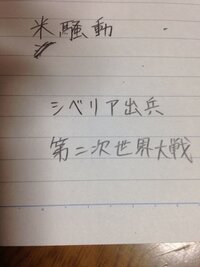 米騒動
シベリア出兵
第二次世界大戦